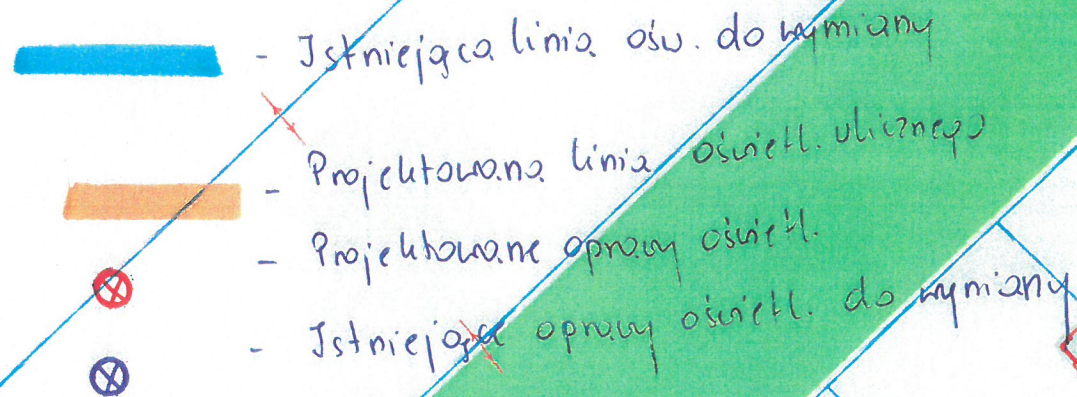 - Istniejąca linia ośw. do wymiany
- Projektowana linia oświetl. ulicznego
- Projektowane oprawy oświetl.
- Istniejące oprawy oświetl. do wymiany